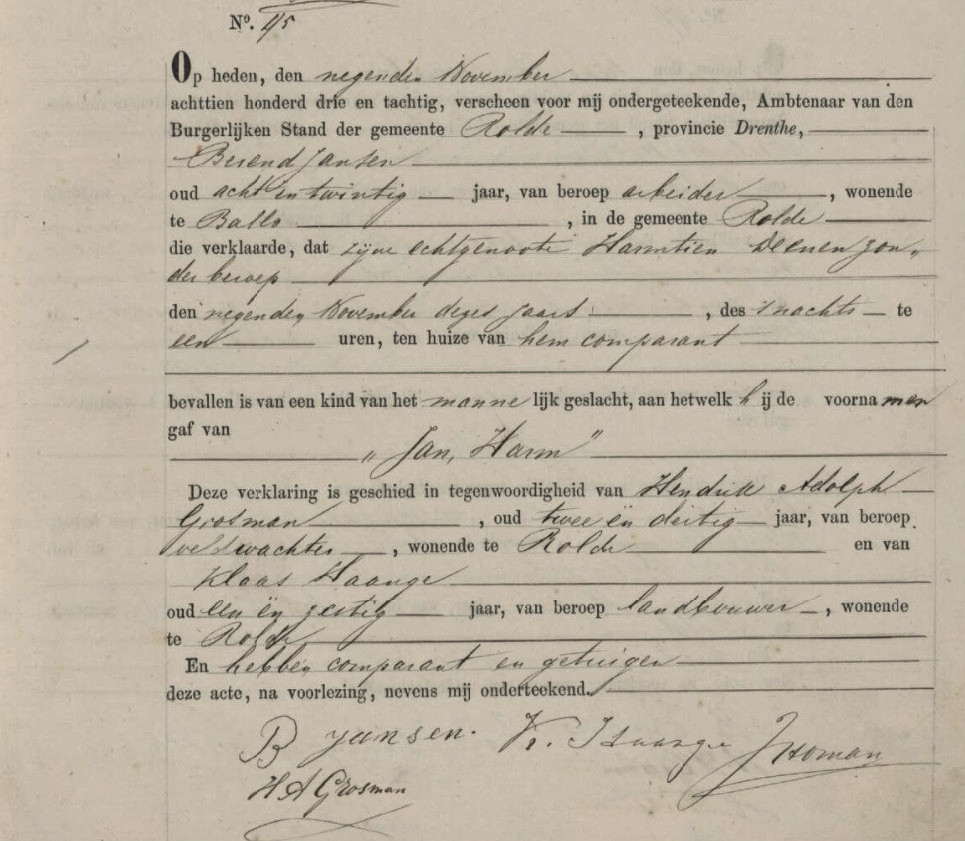 No. 45
Op heden, den negenden November
achttien honderd drie en tachtig, verscheen voor mij ondergeteekende, Ambtenaar van den
Burgerlijken Stand der gemeente Rolde, provincie Drenthe,
Berend Jansen
oud acht en twintig jaar, van beroep arbeider, wonende
te Ballo, in de gemeente Rolde
die verklaarde, dat zijne echtgenoote Harmtien Deenen zon„
der beroep
den negenden November dezes jaars, des snachts te
een uren, ten huize van hem comparant
bevallen is van een kind van het mannelijk geslacht, aan hetwelk hij de voornamen
gaf van
„Jan, Harm”
Deze verklaring is geschied in tegenwoordigheid van Hendrik Adolph
Grosman, oud twee en dertig jaar, van beroep
veldwachter, wonende te Rolde en van
Klaas Haange
oud een en zestig jaar, van beroep landbouwer, wonende
te Rolde
En hebben comparant en getuigen
deze acte, na voorlezing, nevens mij onderteekend.
B Jansen. K. Haange JHoman
H A Grosman